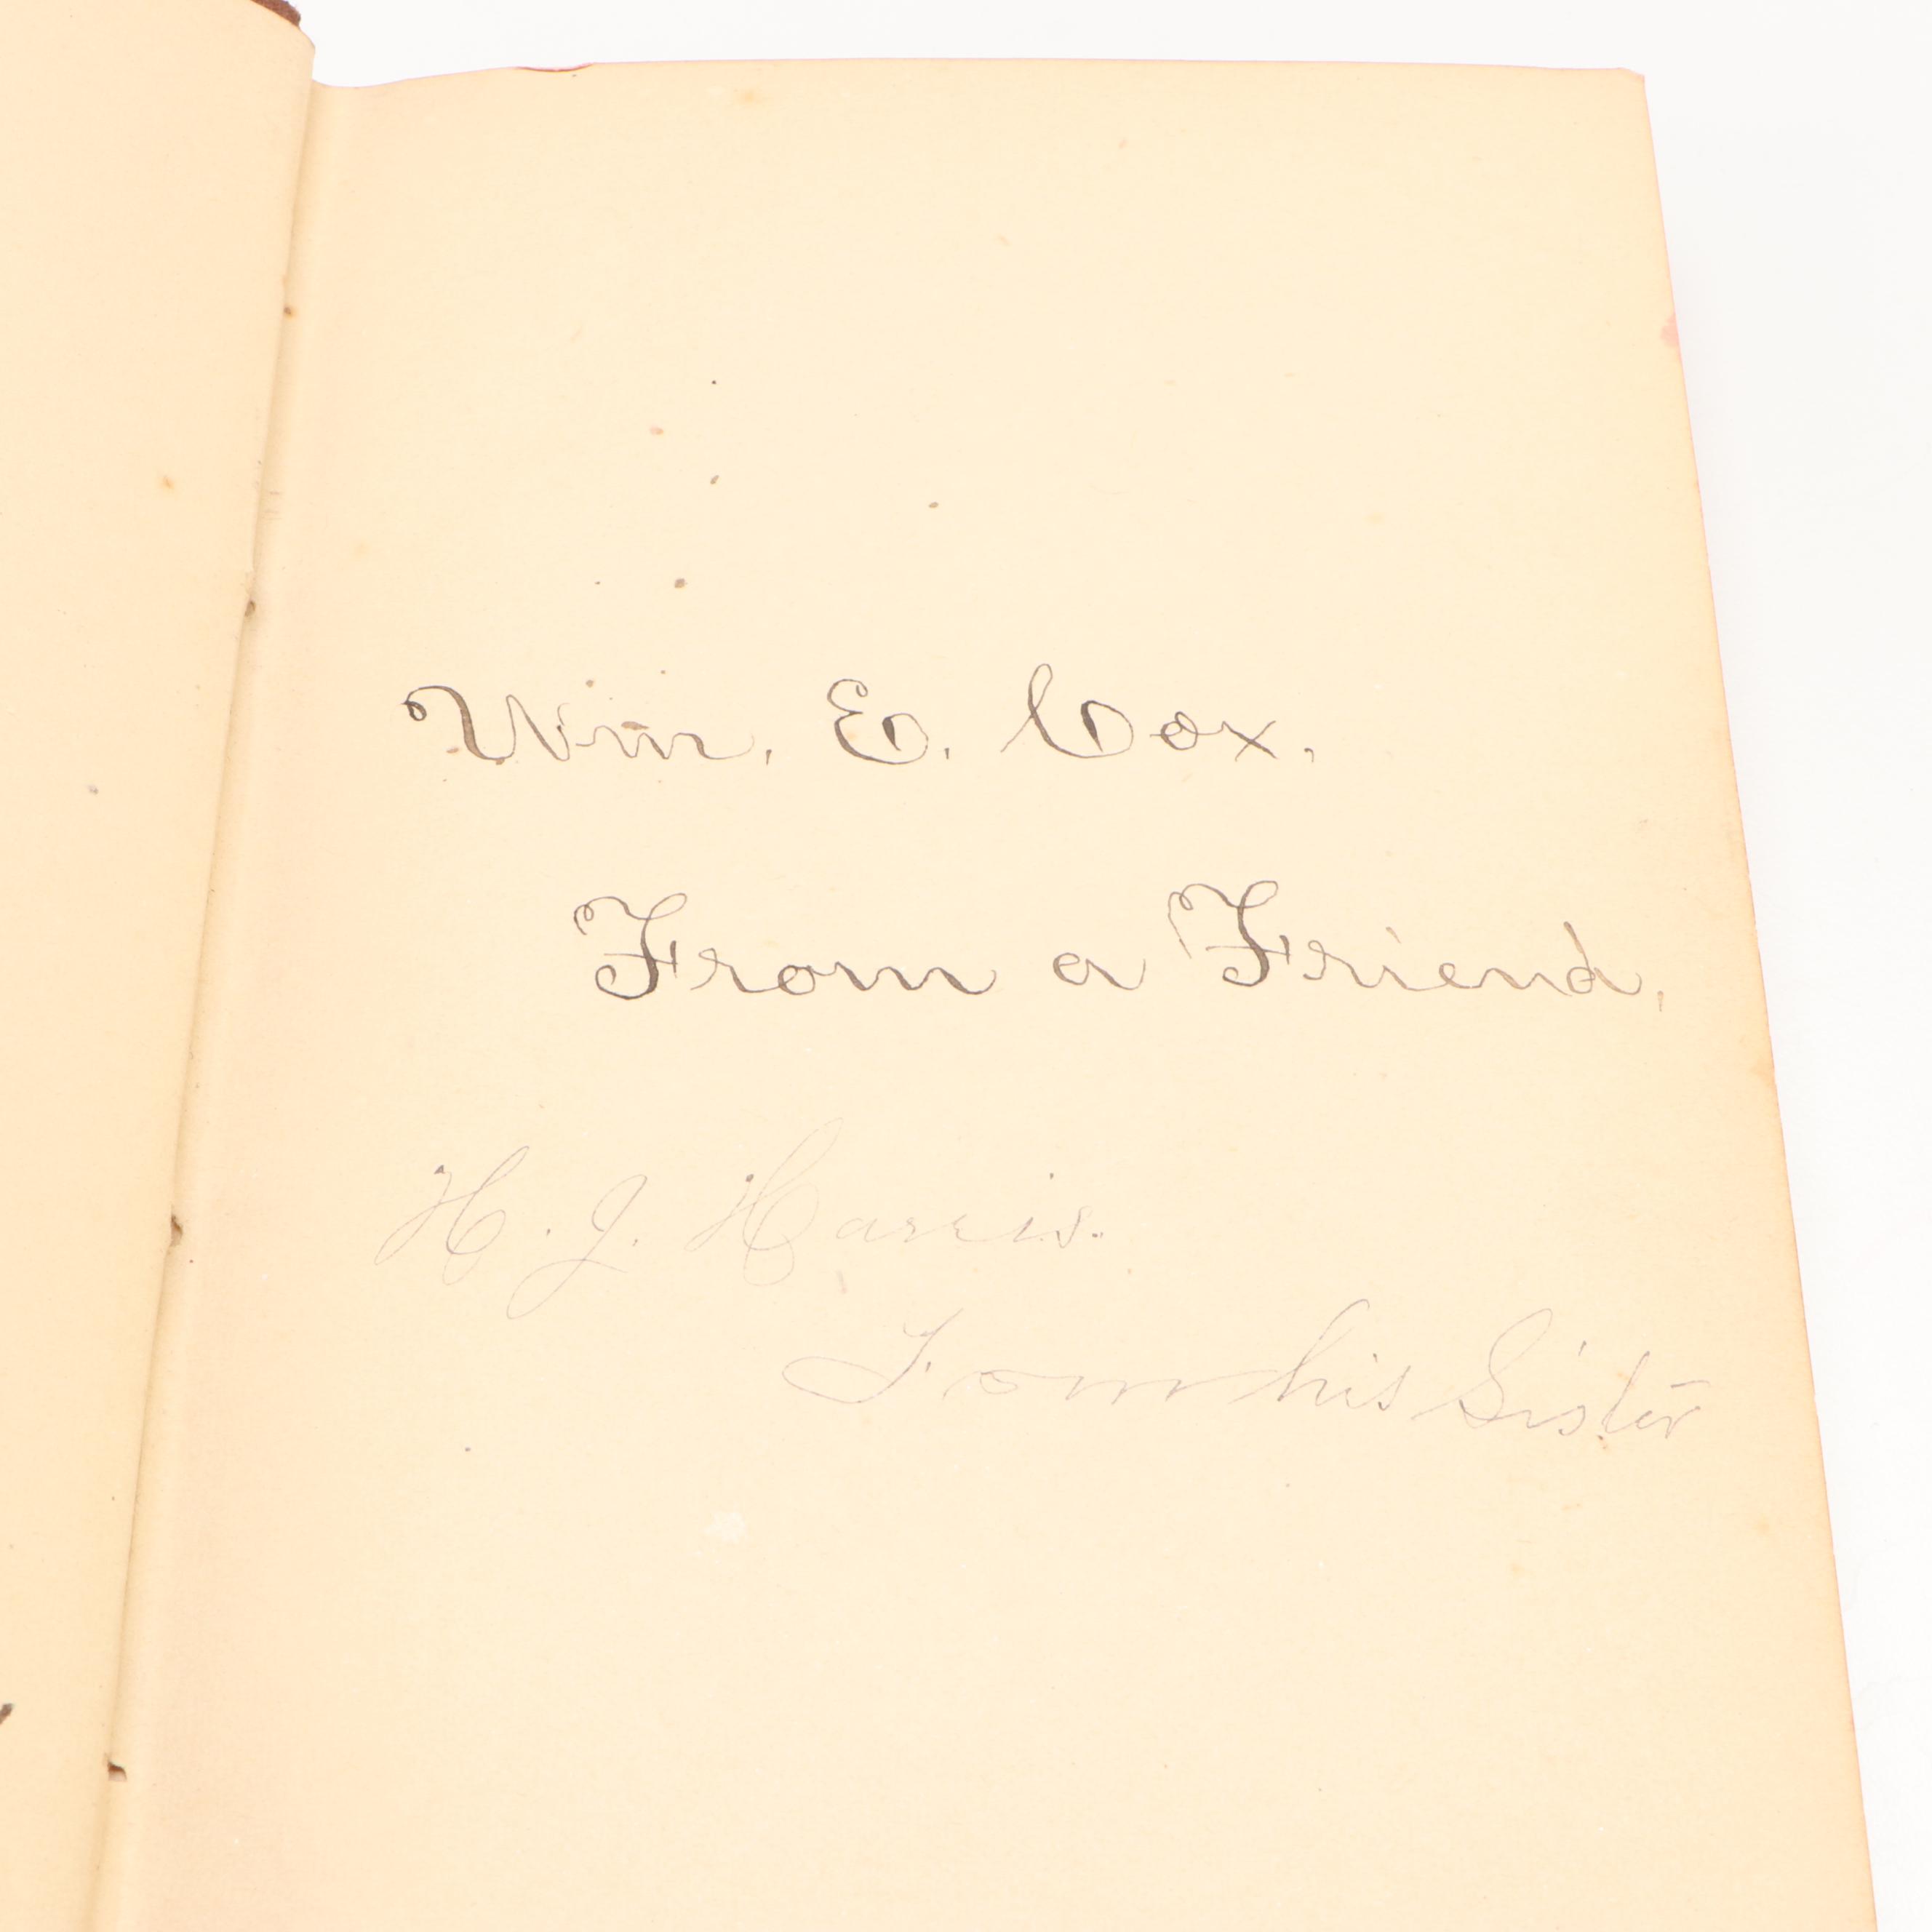 Wm. E. Cox.
From a Friend.
H. J. Harris.
From his Sister